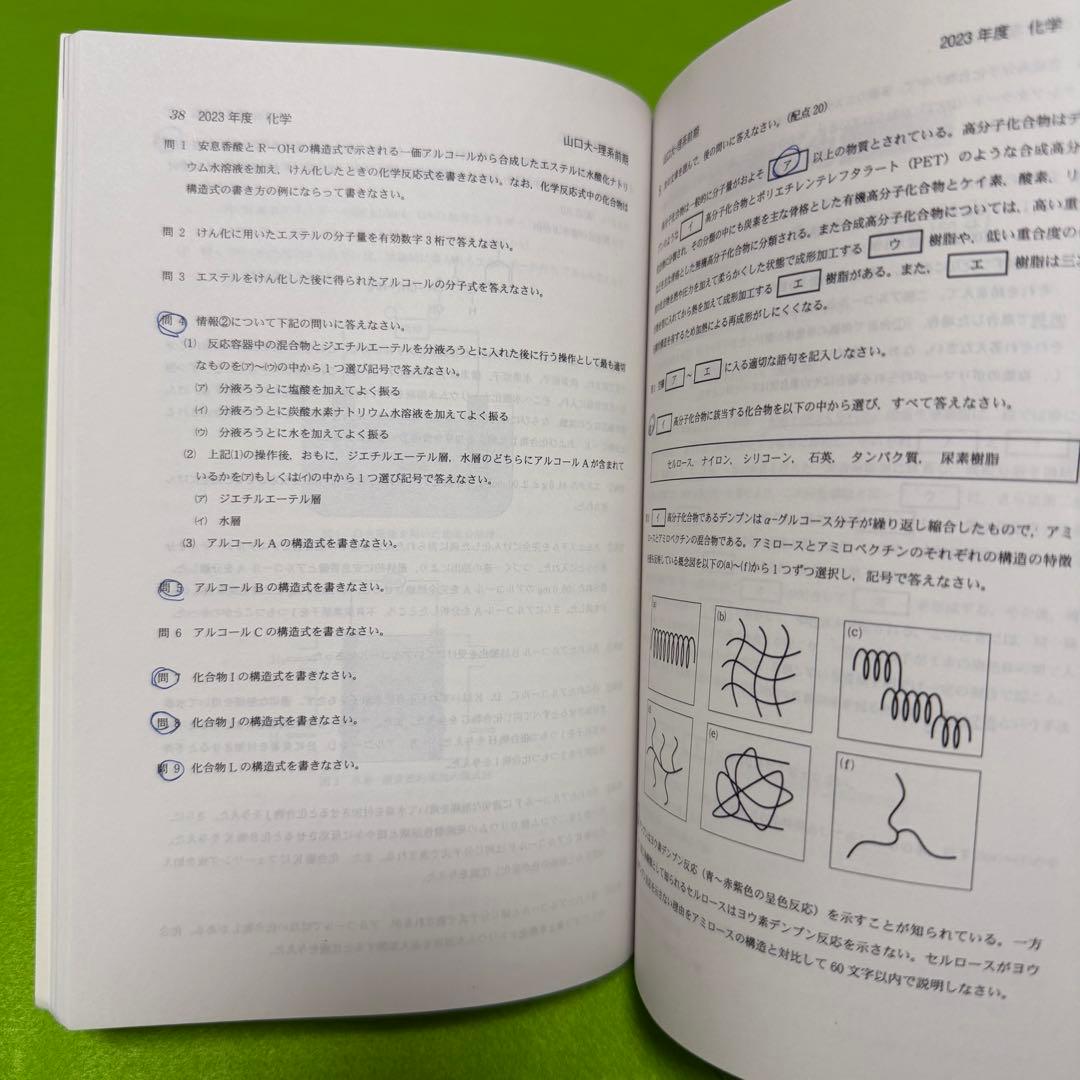 38 2023年度 化学
山口大-理系前期
問1 安息香酸とR-OHの構造式で示される一価アルコールから合成したエステルに水酸化ナトリ
ウム水溶液を加え,けん化したときの化学反応式を書きなさい。なお,化学反応式中の化合物は
構造式の書き方の例にならって書きなさい。
問2 けん化に用いたエステルの分子量を有効数字3桁で答えなさい。
問3 エステルをけん化した後に得られたアルコールの分子式を答えなさい。
問4 情報②について下記の問いに答えなさい。
(1) 反応容器中の混合物とジエチルエーテルを分液ろうとに入れた後に行う操作として最も適切
なものを(ア)~(ウ)の中から1つ選び記号で答えなさい。
(ア) 分液ろうとに塩酸を加えてよく振る
(イ) 分液ろうとに炭酸水素ナトリウム水溶液を加えてよく振る
(ウ) 分液ろうとに水を加えてよく振る
(2) 上記(1)の操作後,おもに,ジエチルエーテル層,水層のどちらにアルコールAが含まれて
いるかを(ア)もしくは(イ)の中から1つ選び記号で答えなさい。
(ア) ジエチルエーテル層
(イ) 水層
(3) アルコールAの構造式を書きなさい。
問5 アルコールBの構造式を書きなさい。
問6 アルコールCの構造式を書きなさい。
問7 化合物Iの構造式を書きなさい。
問8 化合物Jの構造式を書きなさい。
問9 化合物Lの構造式を書きなさい。
2023年度 化学
山口大-理系前期
後の問に答えなさい。(配点20)
一般的に分子量がおよそ ア 以上の物質とされている。高分子化合物はデ
イ 高分子化合物とポリエチレンテレフタラート(PET)のような合成高分
され,その分類の中にも炭素を主な骨格とした有機高分子化合物とケイ素,酸素,リ
とした無機高分子化合物に分類される。また合成高分子化合物については,高い重
熱や圧力を加えて柔らかくした状態で成形加工する ウ 樹脂や,低い重合度の
に入れてから熱を加えて成形加工する エ 樹脂がある。また, エ 樹脂は三次
するため加熱による再成形がしにくくなる。
ア ~ エ に入る適切な語句を記入しなさい。
イ 高分子化合物に該当する化合物を以下の中から選び,すべて答えなさい。
セルロース,ナイロン,シリコーン,石英,タンパク質,尿素樹脂
イ 高分子化合物であるデンプンはα-グルコース分子が繰り返し縮合したもので,アミ
ロースとアミロペクチンの混合物である。アミロースとアミロペクチンのそれぞれの構造の特徴
を反映している概念図を以下の(a)~(f)から1つずつ選択し,記号で答えなさい。
(b)
(c)
(e)
(f)
デンプンはヨウ素デンプン反応(青~赤紫色の呈色反応)を示すことが知られている。一方
として知られるセルロースはヨウ素デンプン反応を示さない。セルロースがヨウ
さない理由をアミロースの構造と対比して60文字以内で説明しなさい。